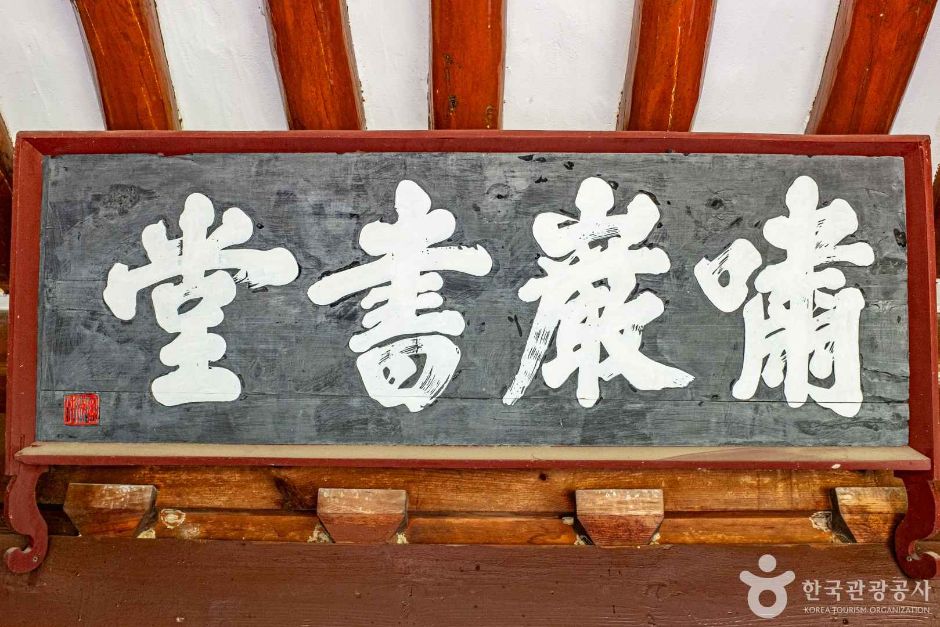 嘯巖書堂
한국관광공사
KOREA TOURISM ORGANIZATION